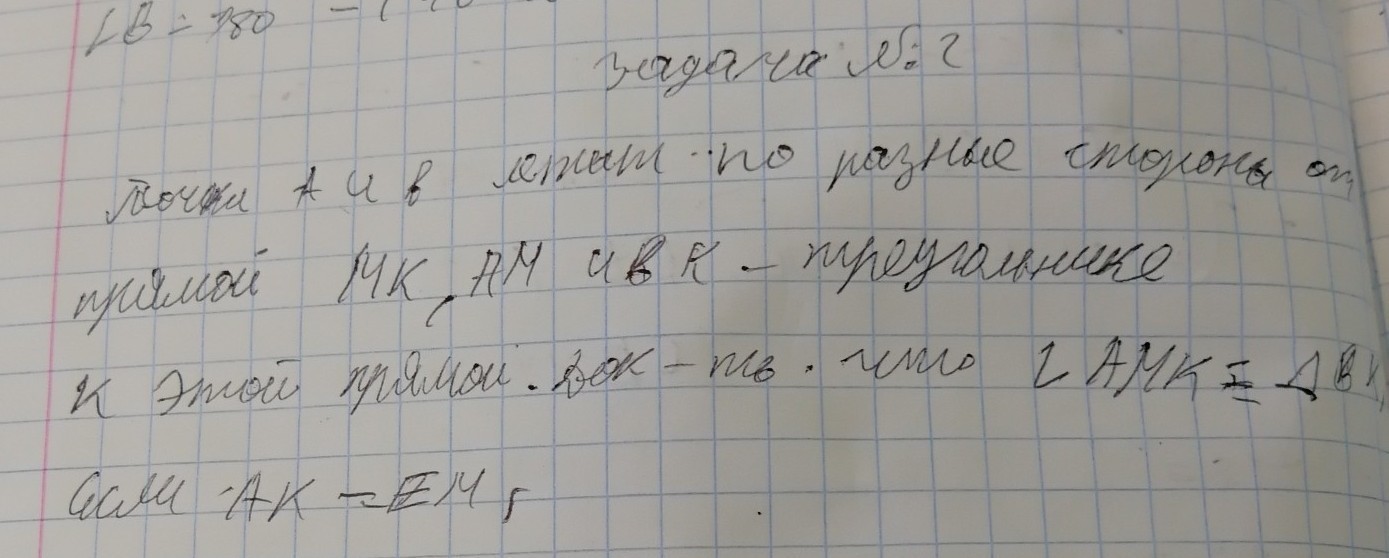 ∠B = 180 -
задача №: 2
Точки А и в лежат по разные стороны от
прямой МК, АМ и ВК - треугольнике
к этой прямой. Док-ть. что ∠ АМК = Δ ВК
если АК = ЕМ,